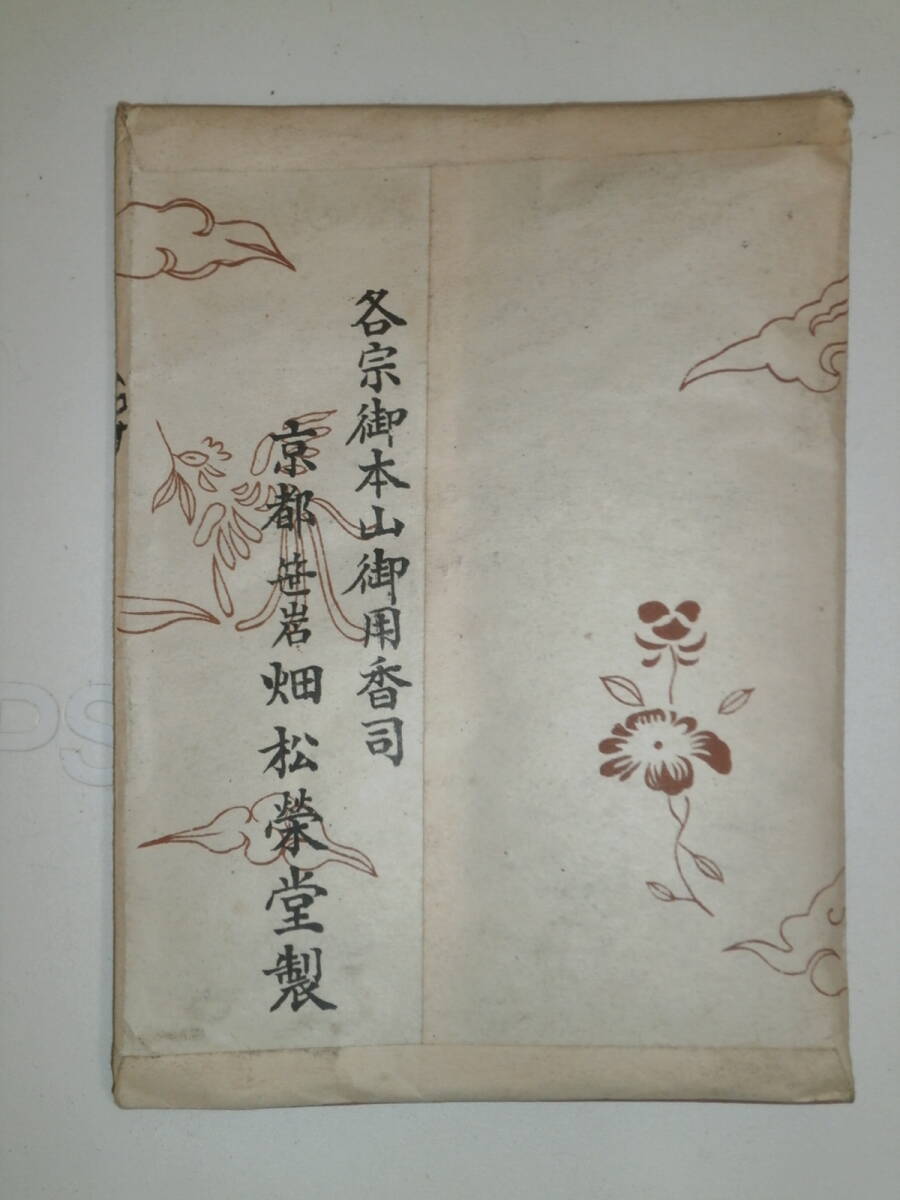 各宗御本山御用香司
京都笹岩畑松榮堂製